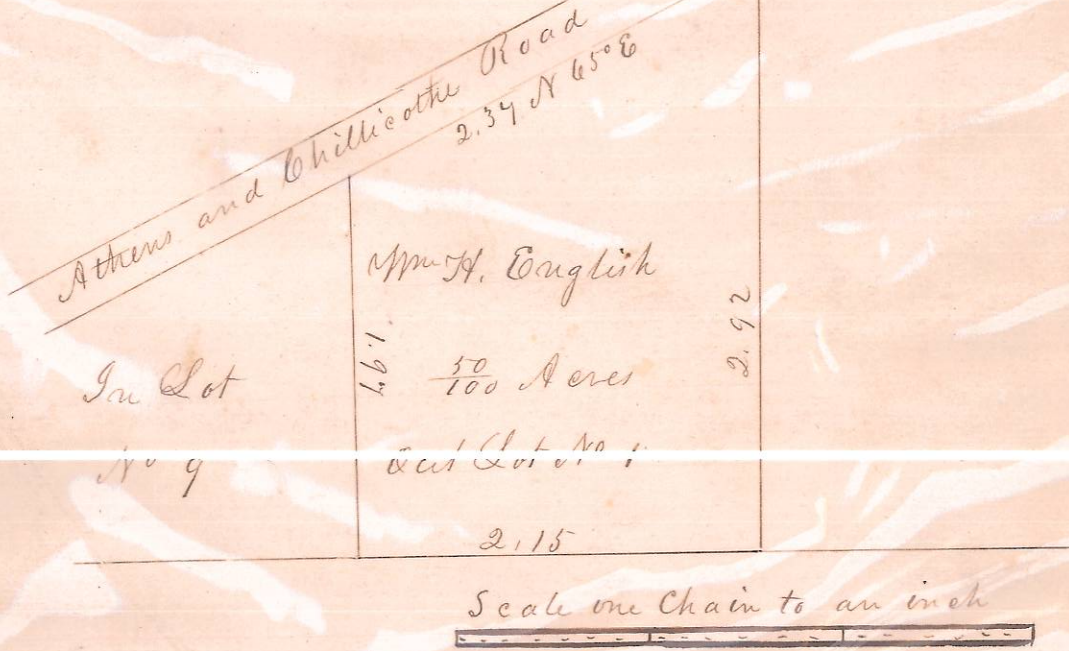 Athens and Chillicothe Road
2.37 N 65° E
Wm H. English
1.97
2.92
50/100 Acres
In Lot
No 9
Out Lot No 1
2.15
Scale one Chain to an inch